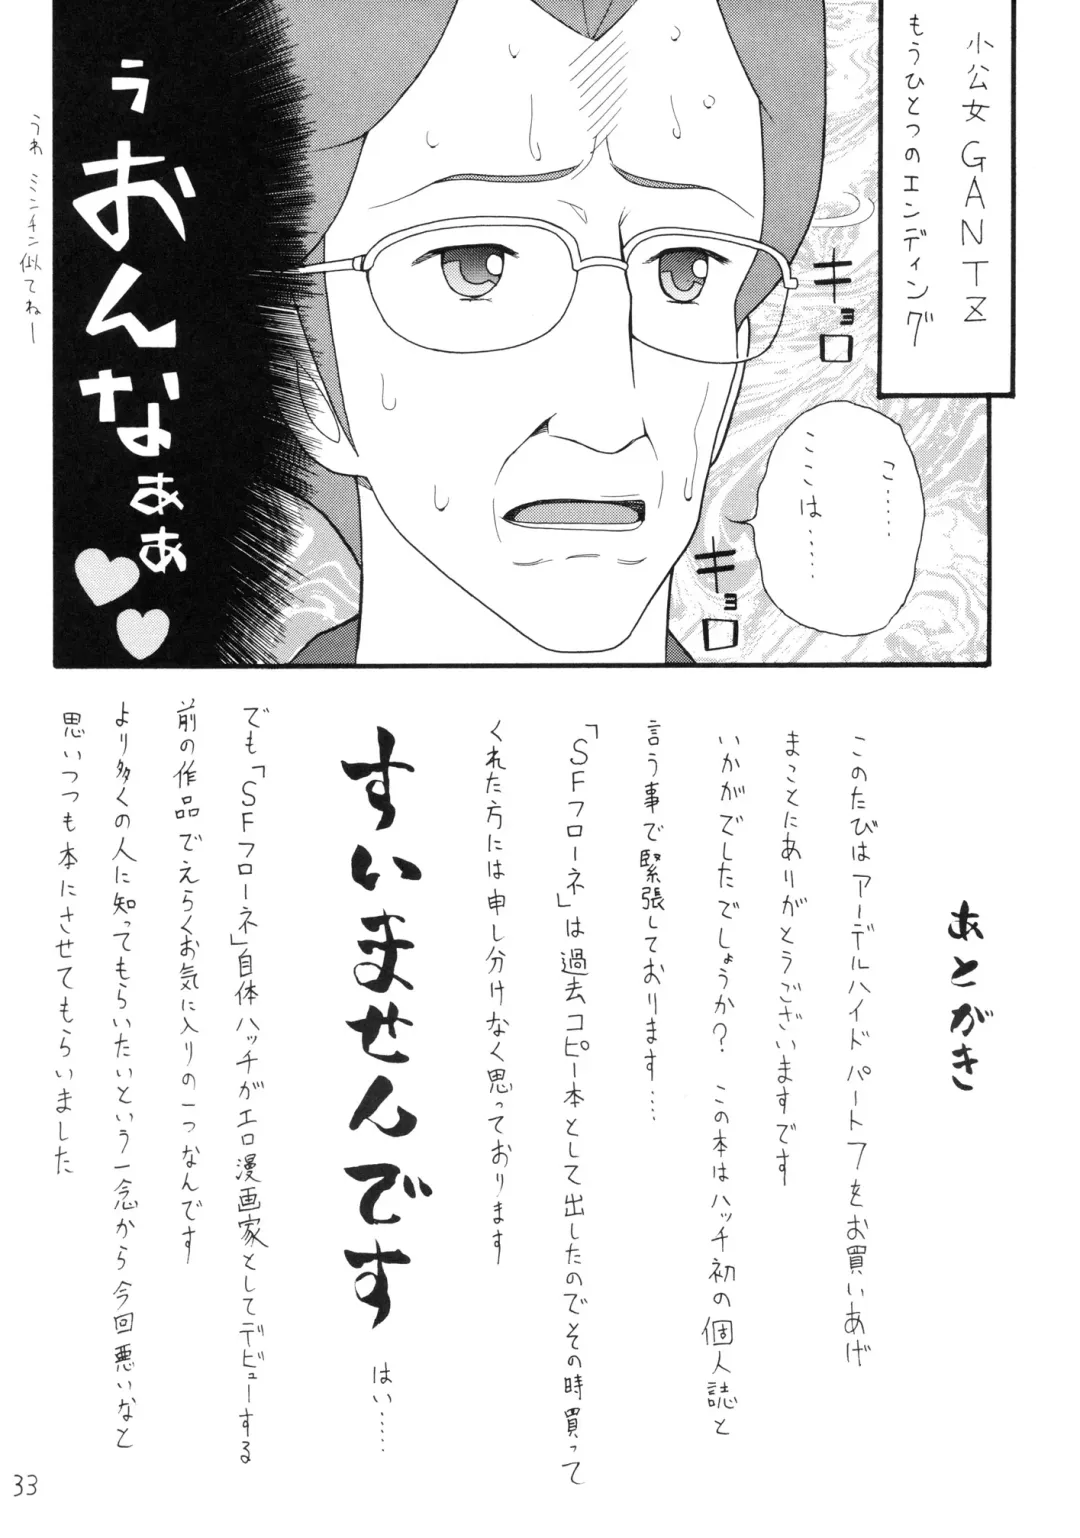 小公女GANTZ
もうひとつのエンディング
キョロ
こ……
ここは……
キョロ
うおんなぁぁぁ
うわ ミンチン似てねー
あとがき
このたびはアーデルハイドパートフをお買いあげ
まことにありがとうございますです
いかがでしたでしょうか？ この本はハッチ初の個人誌と
言う事で緊張しております……
「SFフローネ」は過去コピー本として出したのでその時買って
くれた方には申し分けなく思っております
すいませんです
はい……
でも「SFフローネ」自体ハッチがエロ漫画家としてデビューする
前の作品でえらくお気に入りの一つなんです
より多くの人に知ってもらいたいという一念から今回悪いなと
思いつつも本にさせてもらいました
33